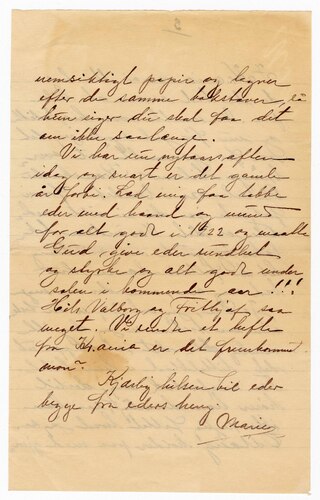 5
papir og tegner
efter de samme bokstaver, så
hun siger du skal faa det
om ikke saalænge.
Vi har nu nytaarsaften
idag og snart er det gamle
år forbi. Lad mig faa takke
eder med haand og mund
for alt godt i 1922 og maatte
Gud give eder sundhet
og styrke og alt godt under
solen i kommende aar!!!
Hils Valborg og Frithjof saa
meget. Vi sendte et hefte
fra er det fremkommet
mon?
Kjærlig hilsen til eder
begge fra eders heng.
Marie